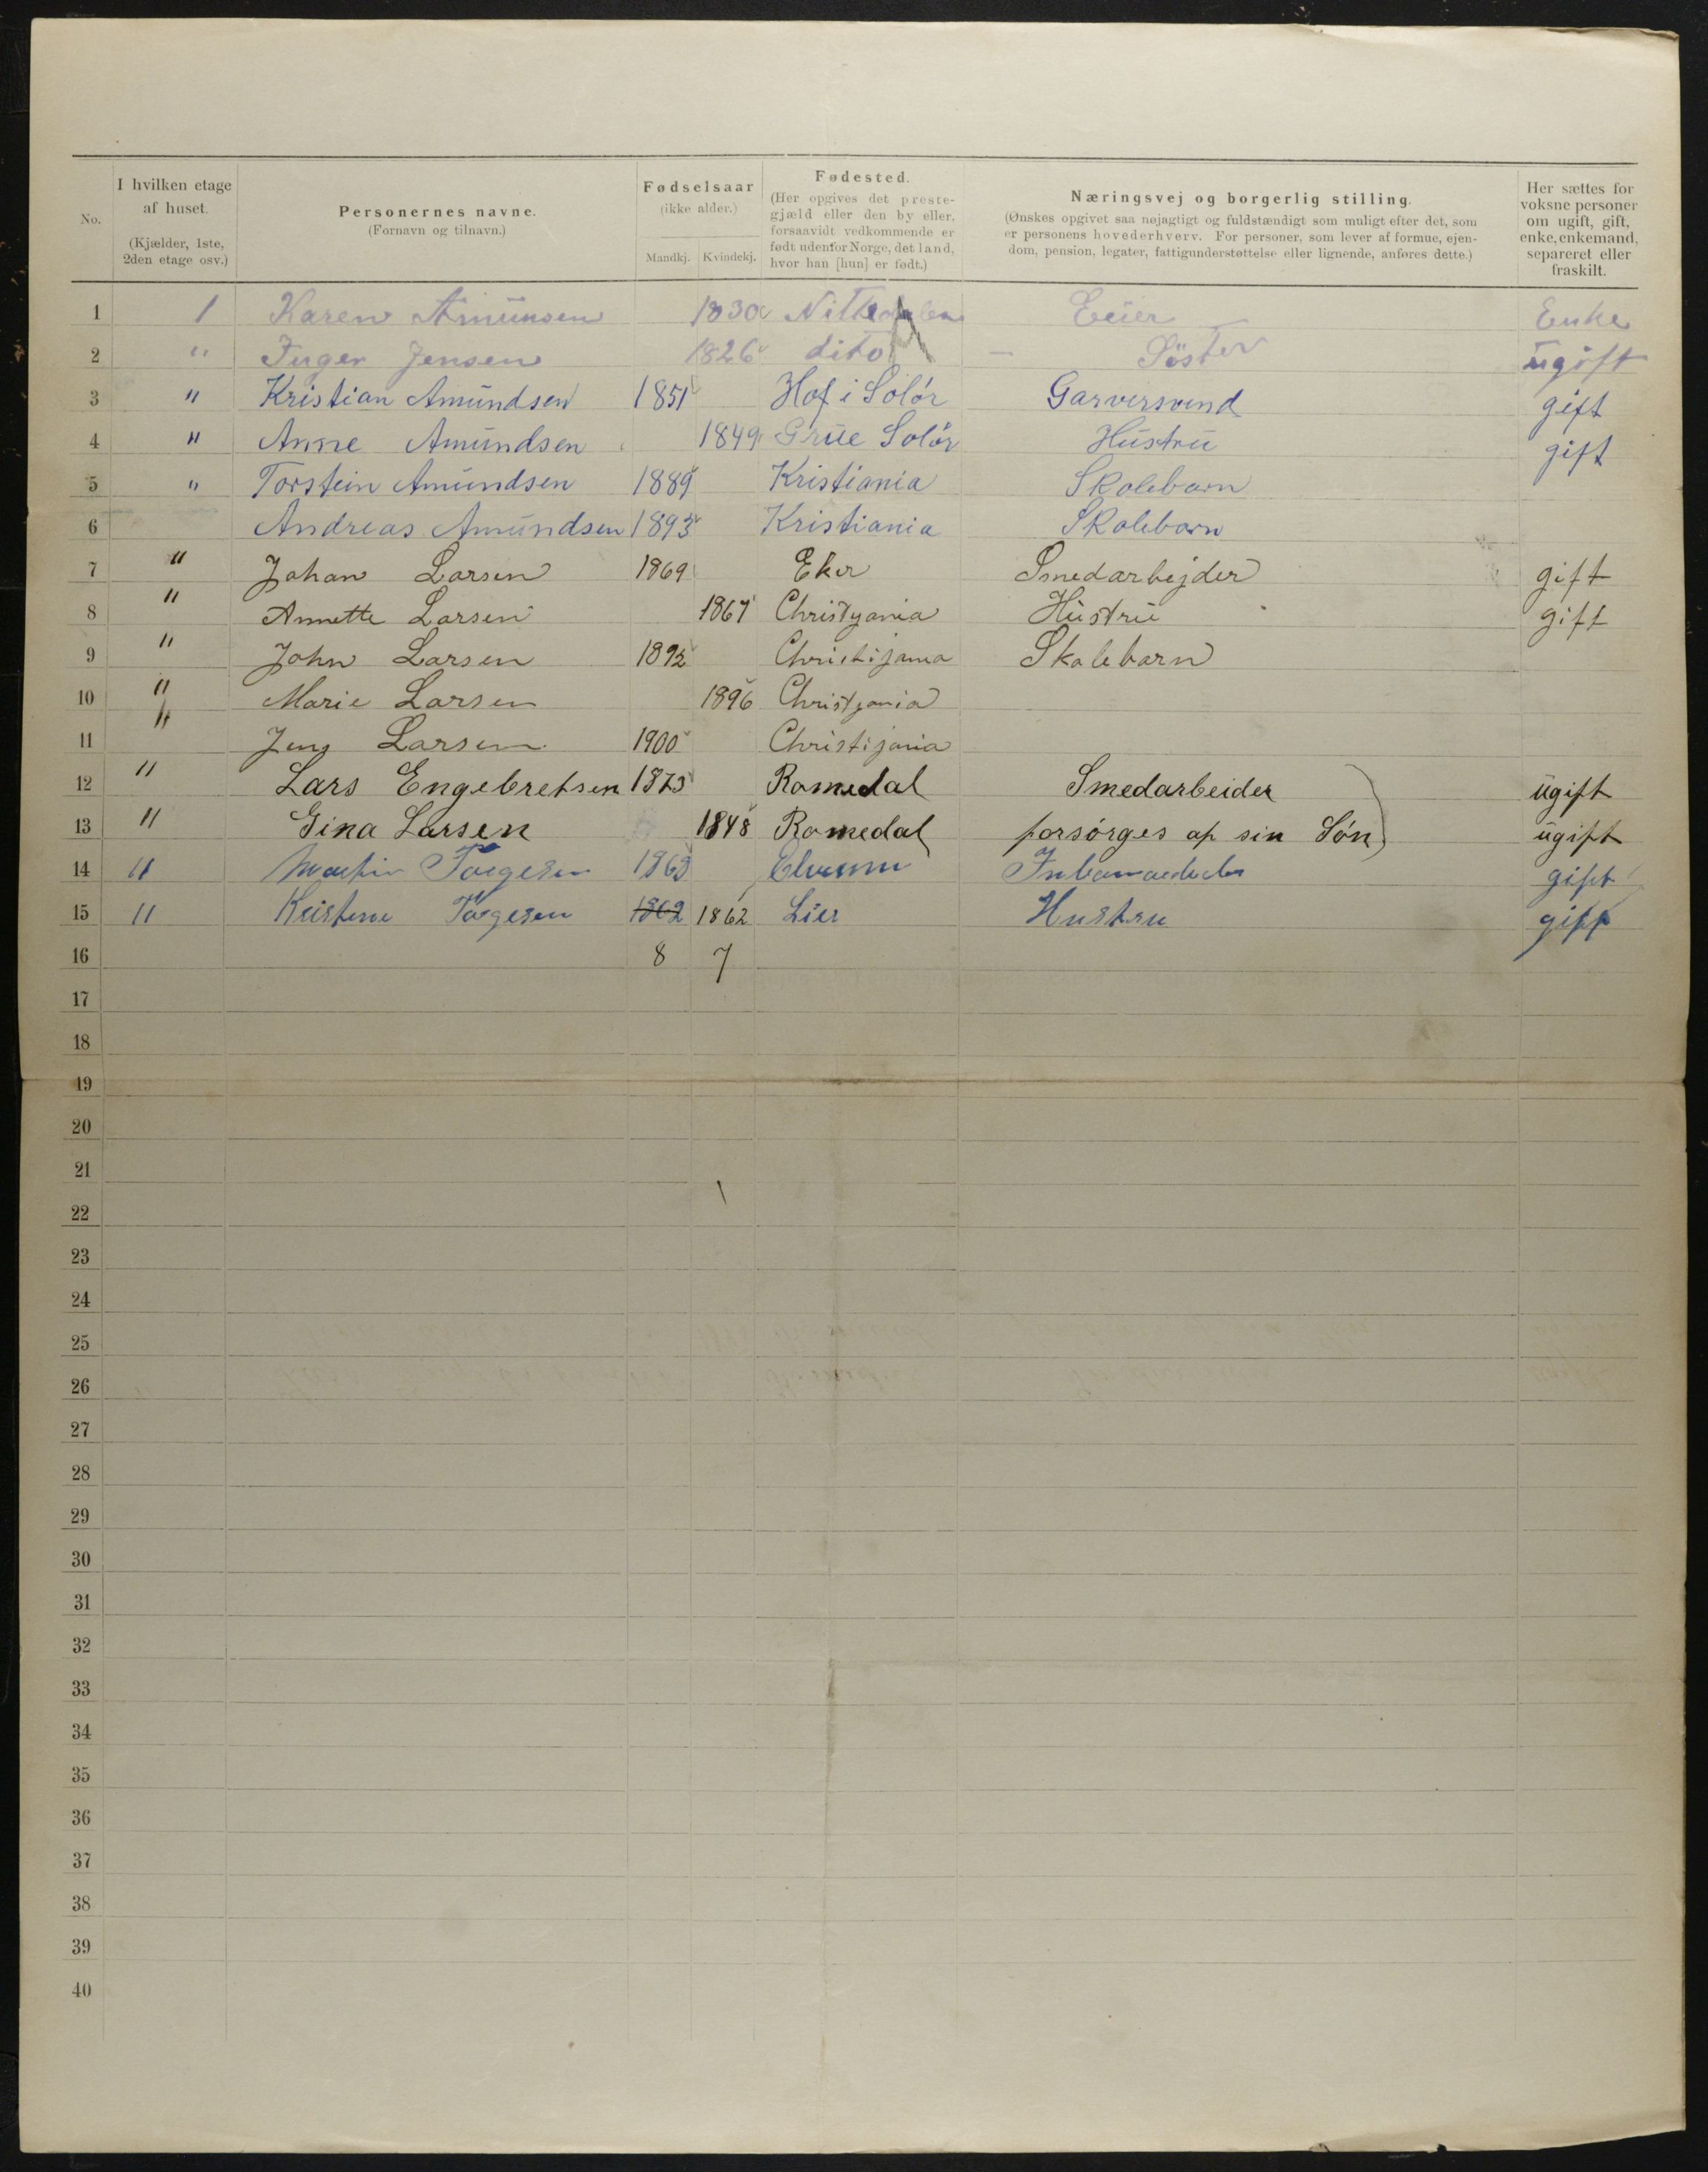 No. I hvilken etage af huset. (Kjælder, 1ste, 2den etage osv.) Personernes navne. (Fornavn og tilnavn.) Fødselsaar (ikke alder.) Mandkj. Kvindekj. Fødested. (Her opgives det prestegjæld eller den by eller, forsaavidt vedkommende er født udenfor Norge, det land, hvor han [hun] er født.) Næringsvej og borgerlig stilling. (Ønskes opgivet saa nøjagtigt og fuldstændigt som muligt efter det, som er personens hovederhverv. For personer, som lever af formue, ejendom, pension, legater, fattigunderstøttelse eller lignende, anføres dette.) Her sættes for voksne personer om ugift, gift, enke, enkemand, separeret eller fraskilt.
1 1 Karen Amunsen 1830 Nittedalen Eeier Enke
2 " Inger Jensen 1826 dito – Söster ugift
3 " Kristian Amundsen 1851 Hof i Solör Garversvend gift
4 " Anne Amundsen 1849 Grue Solör Hustru gift
5 " Torstein Amundsen 1889 Kristiania Skolebarn
6 Andreas Amundsen 1893 Kristiania Skolebarn
7 " Johan Larsen 1869 Eker Smedarbejder gift
8 " Annette Larsen 1867 Christyania Hustru gift
9 " John Larsen 1892 Christijania Skolebarn
10 " Marie Larsen 1896 Christyania
11 " Jens Larsen 1900 Christijania
12 " Lars Engebretsen 1873 Romedal Smedarbeider ugift
13 " Gina Larsen 1848 Romedal forsörges af sin Sön ugift
14 " Martin Torgesen 1863 Elverum gift
15 " Kristine Torgesen 1862 1862 Lier Hustru gift
16 8 7
17
18
19
20
21
22
23
24
25
26
27
28
29
30
31
32
33
34
35
36
37
38
39
40